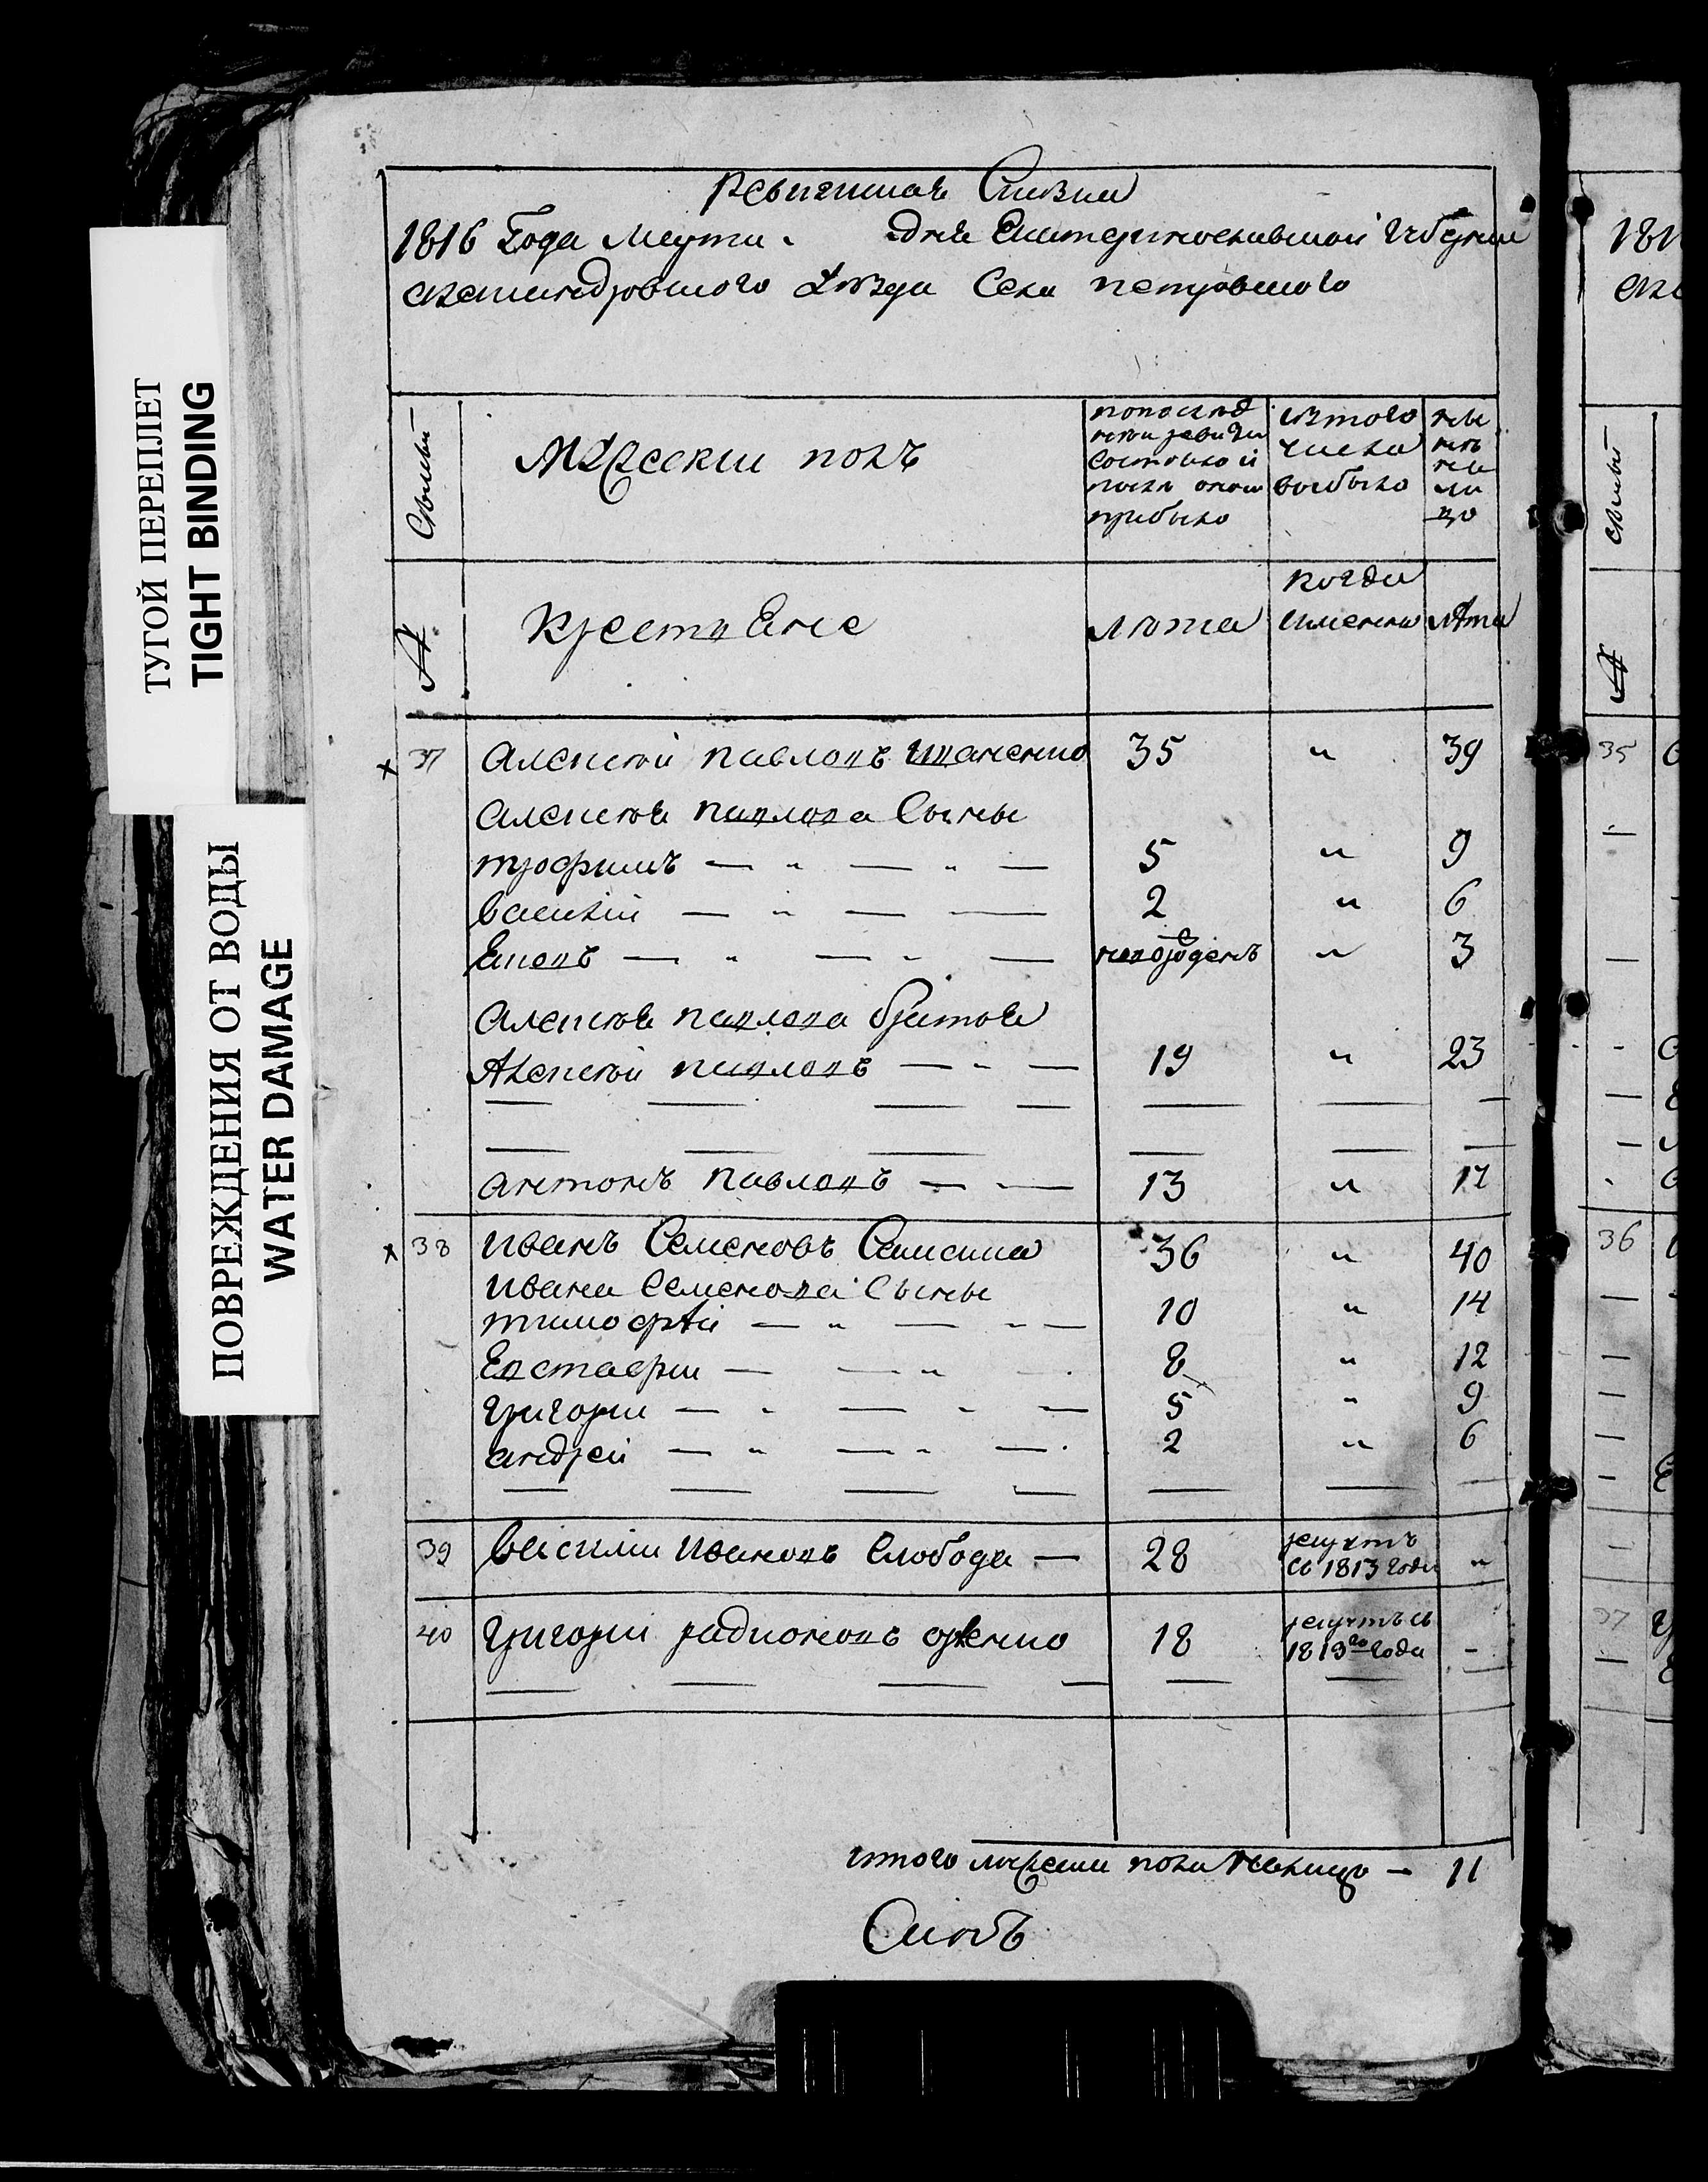 ТУГОЙ ПЕРЕПЛЕТ
TIGHT BINDING
ПОВРЕЖДЕНИЯ ОТ ВОДЫ
WATER DAMAGE
Ревизская Сказка
1816 Года Марта дня Екатеринославской Губернии
Александровского уѣзда Села петровского
Семьи
Мужескии полъ
попослѣд
неои ревизи
Состояло и
послѣ онои
прибыло
изтого
числа
выбыло
ны
нѣ
на
ли
цо
№
крестьяне
лѣта
когда
именно
лѣта
37 алексѣй павловъ 35 „ 39
алексѣя павлова Сыны
трофимъ — „ — „ — 5 „ 9
василий — „ — — 2 „ 6
— „ — „ — неворожденъ „ 3
алексѣя павлова братья
Алексѣй павловъ — „ — 19 „ 23
антонъ павловъ — „ — 13 „ 17
38 иванъ Семеновъ 36 „ 40
ивана Семенова Сыны
тимофѣй — „ — „ — 10 „ 14
Евстафии — — „ — 8 „ 12
григории — „ — „ — 5 „ 9
андрей — „ — „ — 2 „ 6
39 василии ивановъ Слобода — 28 рекрутъ
съ 1813 года „
40 григории радионовъ 18 рекрутъ съ
1813го года -
итого мужеска пола налицо — 11
1816
35
36
37